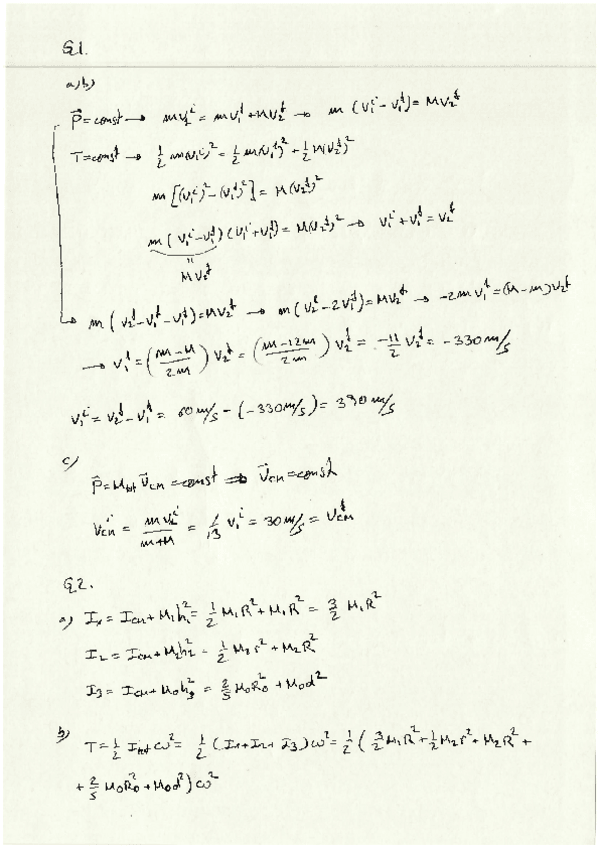 Q1.
a)b)
P⃗=const → mv₂ⁱ = mv₁ᶠ + Mv₂ᶠ → m (v₁ⁱ - v₁ᶠ) = Mv₂ᶠ
T=const → 1/2 m(v₁ⁱ)² = 1/2 m(v₁ᶠ)² + 1/2 M(v₂ᶠ)²
m [(v₁ⁱ)² - (v₁ᶠ)²] = M(v₂ᶠ)²
m (v₁ⁱ - v₁ᶠ) (v₁ⁱ + v₁ᶠ) = M(v₂ᶠ)² → v₁ⁱ + v₁ᶠ = v₂ᶠ
"
Mv₂ᶠ
→ m (v₂ᶠ - v₁ᶠ - v₁ᶠ) = Mv₂ᶠ → m (v₂ᶠ - 2v₁ᶠ) = Mv₂ᶠ → -2mv₁ᶠ = (M-m)v₂ᶠ
→ v₁ᶠ = ((m-M)/2m) v₂ᶠ = ((m-12m)/2m) v₂ᶠ = -11/2 v₂ᶠ = -330 m/s
v₁ⁱ = v₂ᶠ - v₁ᶠ = 60 m/s - (-330 m/s) = 390 m/s
c)
P⃗ = M_tot v⃗_CM = const ⇒ v⃗_CM = const
v_CMⁱ = mv₂ⁱ/(m+M) = 1/13 v₁ⁱ = 30 m/s = v_CMᶠ
Q2.
a) I₁ = I_CM + M₁h₁² = 1/2 M₁R² + M₁R² = 3/2 M₁R²
I₂ = I_CM + M₂h₂² = 1/2 M₂r² + M₂R²
I₃ = I_CM + M₀h₃² = 2/5 M₀R₀² + M₀d²
b) T = 1/2 I_tot ω² = 1/2 (I₁ + I₂ + I₃) ω² = 1/2 ( 3/2 M₁R² + 1/2 M₂r² + M₂R² +
+ 2/5 M₀R₀² + M₀d² ) ω²